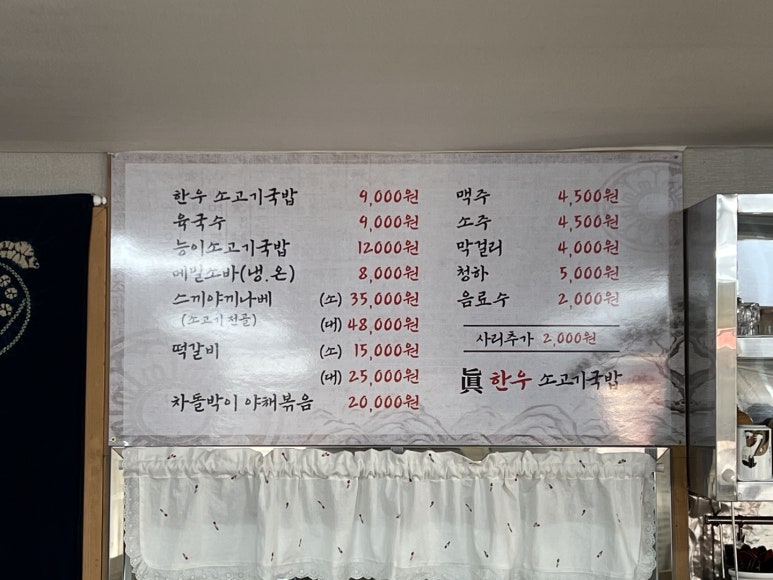 한우 소고기국밥 9,000원
육국수 9,000원
능이소고기국밥 12000원
메밀소바(냉.온) 8,000원
스끼야끼나베 (소) 35,000원
(소고기 전골) (대) 48,000원
떡갈비 (소) 15,000원
(대) 25,000원
차돌박이 야채볶음 20,000원
맥주 4,500원
소주 4,500원
막걸리 4,000원
청하 5,000원
음료수 2,000원
사리추가 2,000원
眞 한우 소고기국밥